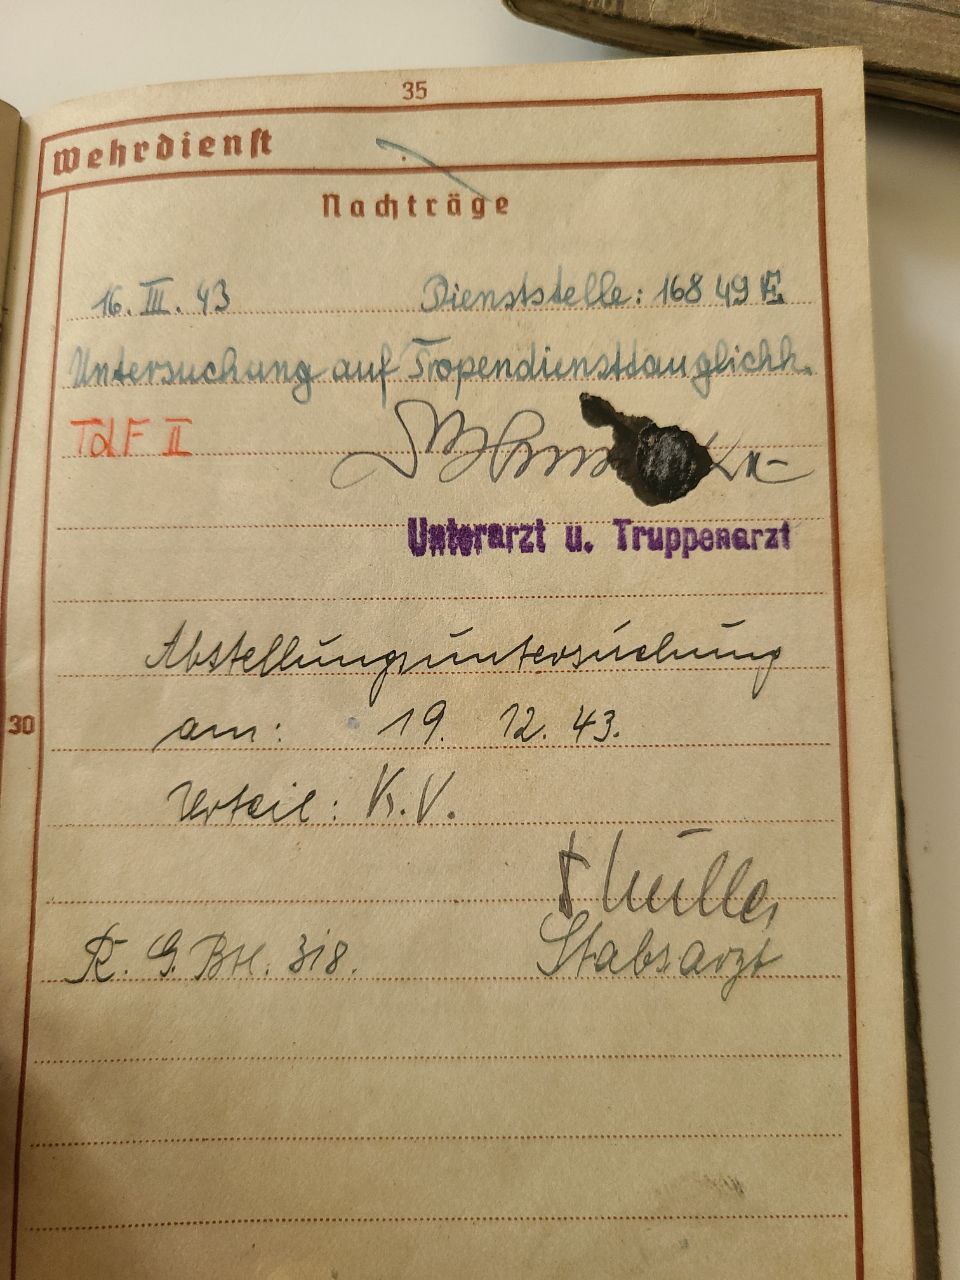 35
Wehrdienst
Nachträge
16. III. 43 Dienststelle: 16849 E
Untersuchung auf Tropendiensttauglichk.
TdF II
Unterarzt u. Truppenarzt
Abstellungsuntersuchung
30
am: 19. 12. 43.
Urteil: K.V.
Müller
R. G. Btl. 318. Stabsarzt